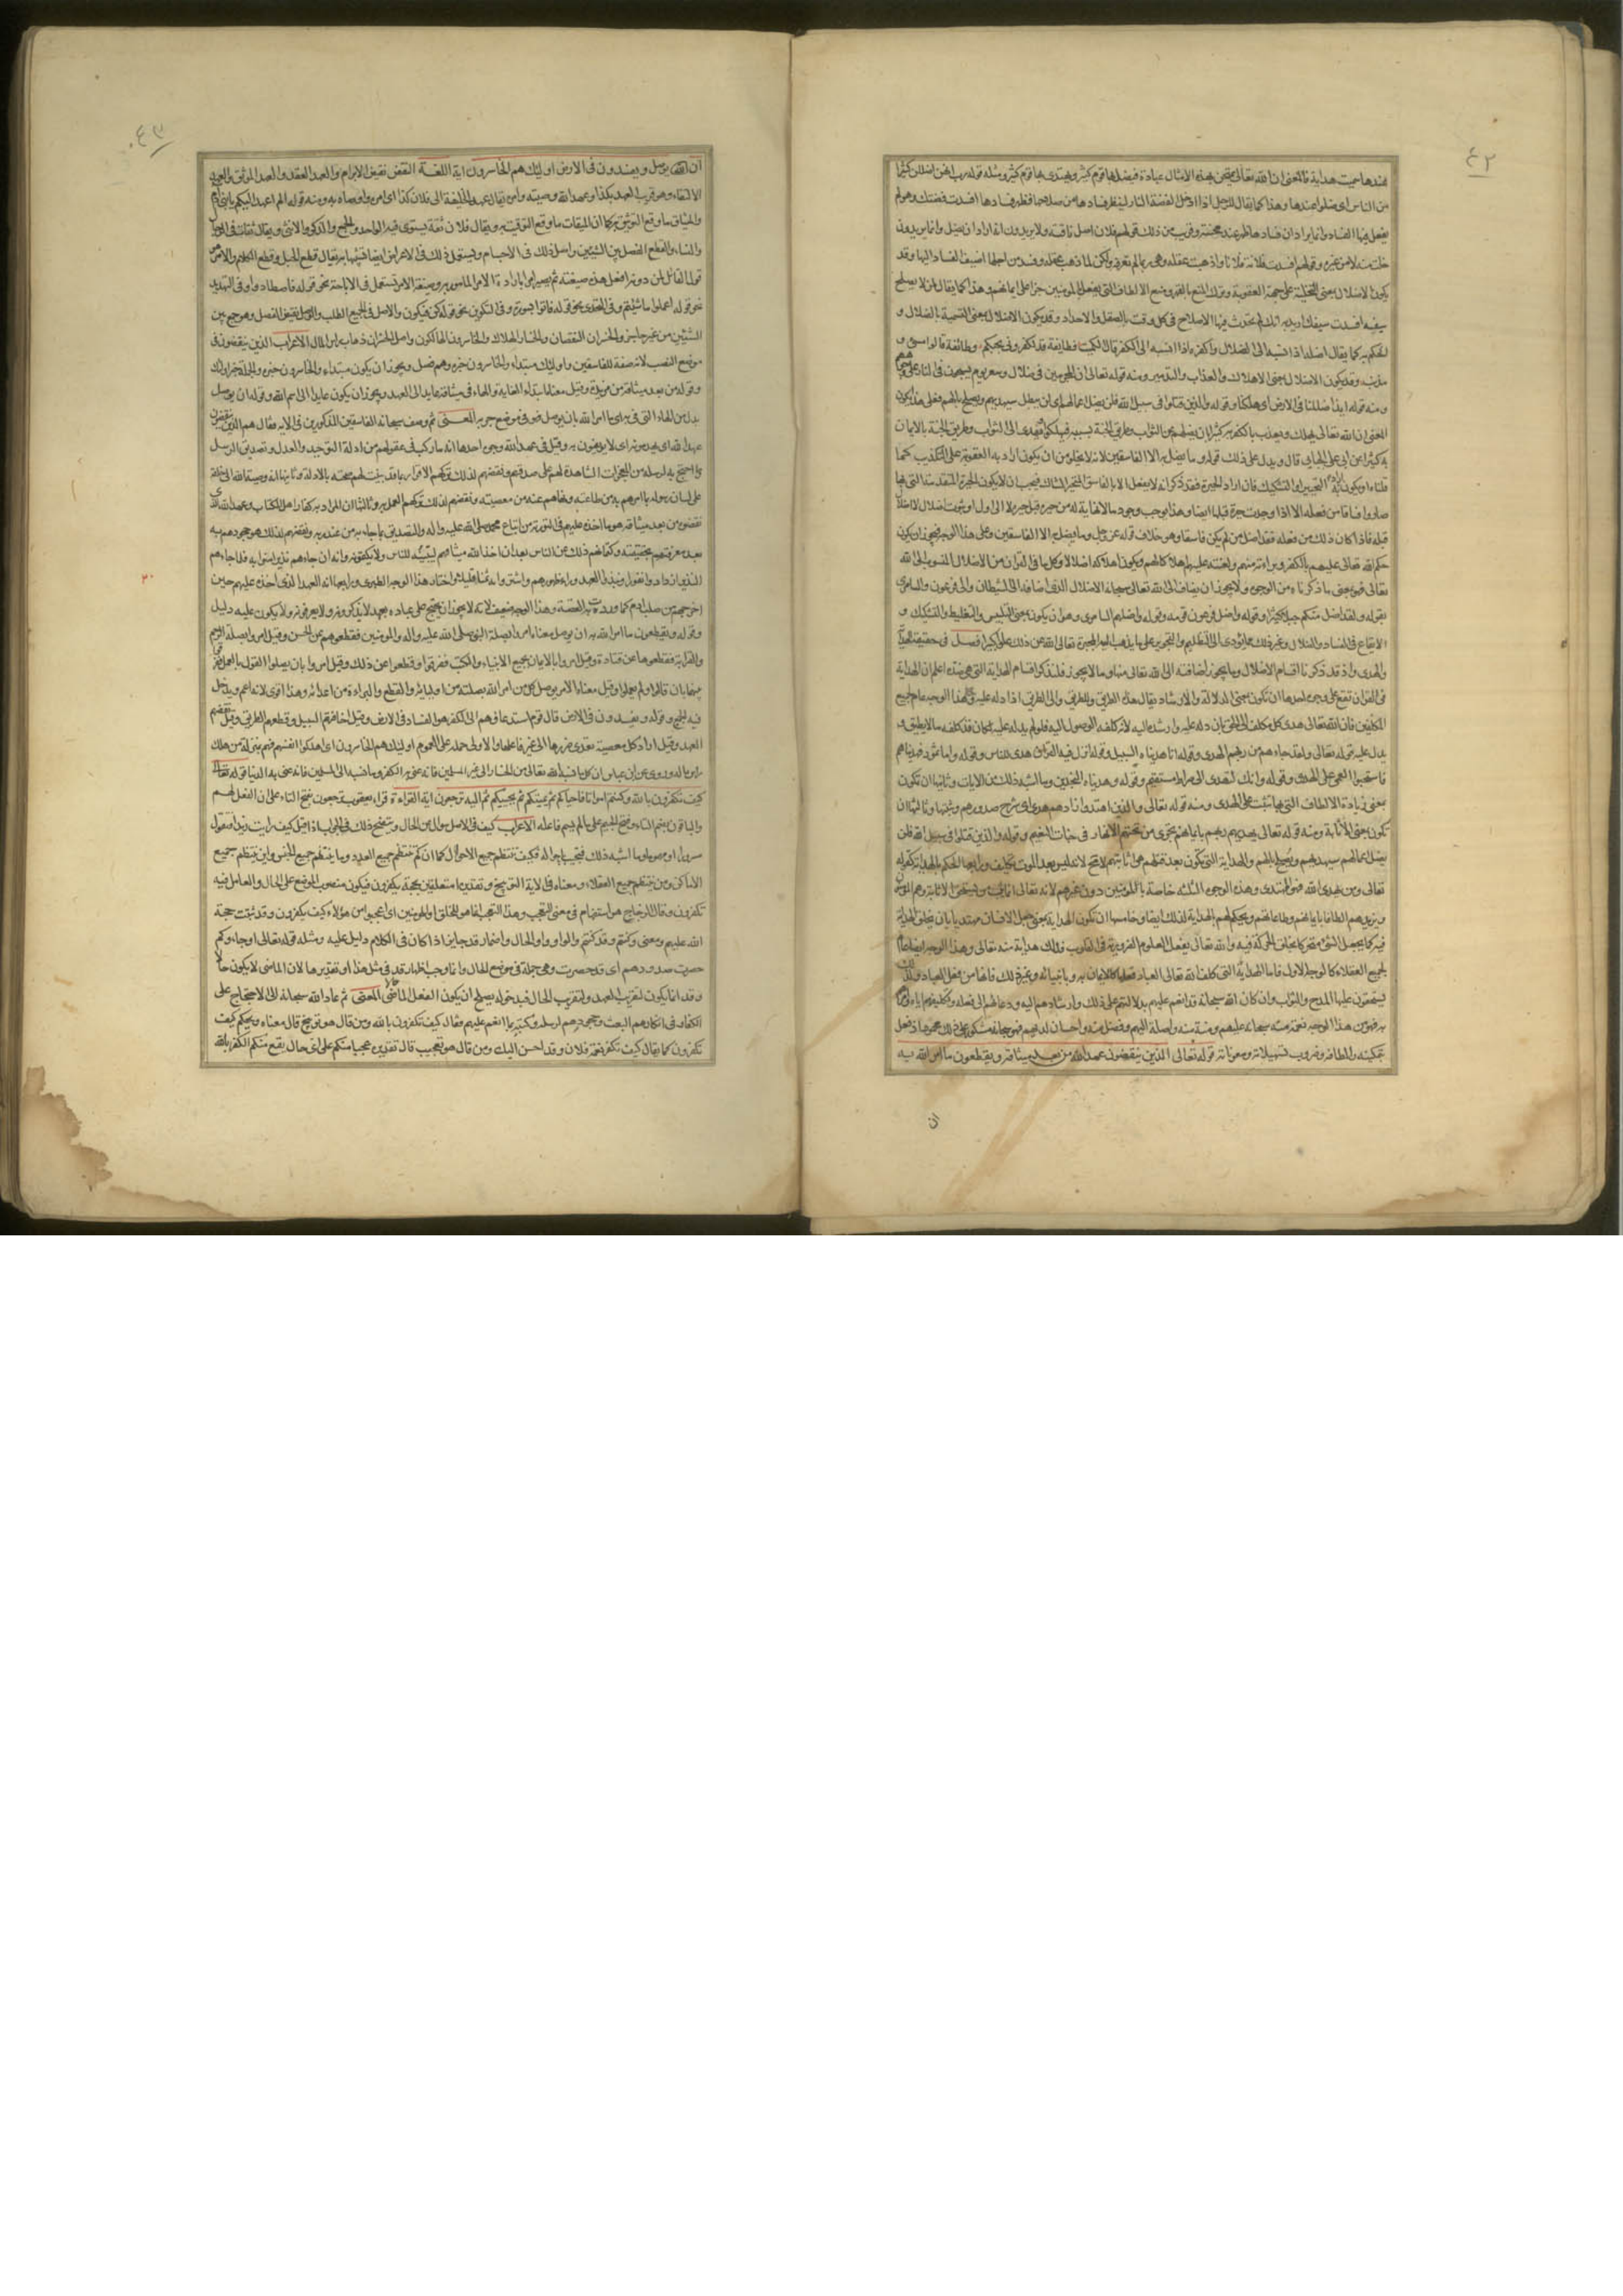 ٤٢
عندها سميت هداية فالمعنى ان الله تعالى يمتحن بهذه الامثال عباده فيضل بها قوم كثير ويهتدى بها قوم كثير ومثله قوله رب انهن اضللن كثيرا
من الناس اى ضلوا عندها وهذا كما يقال للرجل اذا ادخل الفضة النار لينظر فسادها من صلاحها فظهر فسادها افسدت فضتك وهو لم
يفعل فيها الفساد وانما يراد ان فسادها ظهر عند محنته وقريب من ذلك قولهم فلان اضل ناقته ولا يريدون انه اراد ان تضل وانما يريدون
ضلت منه لا من غيره وقولهم افسدت فلانة فلانا واذهبت عقله وهى ربما لم تعرفه ولكن لما ذهب عقله وفسد من اجلها اضيف الفساد اليها وقد
يكون الاضلال بمعنى التخلية على جهة العقوبة وترك المنع بالقهر ومنع الالطاف التى يفعلها بالمؤمنين جزاء على ايمانهم وهذا كما يقال لمن لا يصلح
سيفه افسدت سيفك اريد به انك لم تحدث فيه الاصلاح فى كل وقت بالصقل والاحداد وقد يكون الاضلال بمعنى التسمية بالضلال و
الحكم به كما يقال اضله اذا نسبه الى الضلال واكفره اذا نسبه الى الكفر قال الكميت فطائفة قد اكفرونى بحبكم وطائفة قالوا مسئ و
مذنب وقد يكون الاضلال بمعنى الاهلاك والعذاب والتدمير ومنه قوله تعالى ان المجرمين فى ضلال وسعر يوم يسحبون فى النار على وجوههم
ومنه قوله ائذا ضللنا فى الارض اى هلكنا وقوله والذين قتلوا فى سبيل الله فلن يضل اعمالهم اى لن يبطل سيهديهم ويصلح بالهم فعلى هذا يكون
المعنى ان الله تعالى يهلك ويعذب بالكفر به كثيرا بان يضلهم عن الثواب وطريق الجنة بسببه فيهلكوا ويهدى الى الثواب وطريق الجنة بالايمان
به كثيرا عن ابى على الجبائى قال ويدل على ذلك قوله وما يضل به الا الفاسقين لانه لا يخلو من ان يكون اراد به العقوبة على التكذيب كما
قلناه او يكون اراد به التحيير او التشكيك فان اراد الحيرة فقد ذكر انه لا يفعل الا بالفاسق المتحير الشاك فيجب ان لا يكون الحيرة المتقدمة التى بها
صاروا فساقا من فعله الا اذا وجدت حيرة قبلها ايضا وهذا يوجب وجود ما لا نهاية له من حيرة قبل حيرة لا الى اول او ثبوت اضلال لا اضلال
قبله فاذا كان ذلك من فعله فقد اضل من لم يكن فاسقا وهو خلاف قوله عز وجل وما يضل به الا الفاسقين وعلى هذا الوجه فيجوز ان يكون
حكم الله تعالى عليهم بالكفر وبراءته منهم ولعنته عليهم اهلاكا لهم ويكون اهلاكه اضلالا وكل ما فى القرآن من الاضلال المنسوب الى الله
تعالى فهو بمعنى ما ذكرناه من الوجوه ولا يجوز ان يضاف الى الله تعالى سبحانه الاضلال الذى اضافه الى الشيطان والى فرعون والسامرى
بقوله ولقد اضل منكم جبلا كثيرا وقوله واضل فرعون قومه وقوله واضلهم السامرى وهو ان يكون بمعنى التلبيس والتغليط والتشكيك و
الايقاع فى الفساد والضلال وغير ذلك مما يؤدى الى التظليم والتجوير على ما يذهب اليه المجبرة تعالى الله عن ذلك علوا كبيرا فصل فى حقيقة الهداية
والهدى واذ قد ذكرنا اقسام الاضلال وما يجوز اضافته الى الله تعالى منها وما لا يجوز فلنذكر اقسام الهداية التى هى ضده اعلم ان الهداية
فى القرآن تقع على وجوه احدها ان تكون بمعنى الدلالة والارشاد يقال هداه الطريق وللطريق والى الطريق اذا دله عليه وهذا الوجه عام لجميع
المكلفين فان الله تعالى هدى كل مكلف الى الحق بان دله عليه وارشده اليه لانه كلفه الوصول اليه فلو لم يدله عليه لكان قد كلفه ما لا يطيق و
يدل عليه قوله تعالى ولقد جاءهم من ربهم الهدى وقوله انا هديناه السبيل وقوله انزل فيه القرآن هدى للناس وقوله واما ثمود فهديناهم
فاستحبوا العمى على الهدى وقوله وانك لتهدى الى صراط مستقيم وقوله وهديناه النجدين وما اشبه ذلك من الايات وثانيها ان تكون
بمعنى زيادة الالطاف التى بها تثبت على الهدى ومنه قوله تعالى والذين اهتدوا زادهم هدى اى شرح صدورهم وثبتها وثالثها ان
تكون بمعنى الاثابة ومنه قوله تعالى يهديهم ربهم بايمانهم تجرى من تحتهم الانهار فى جنات النعيم وقوله والذين قتلوا فى سبيل الله فلن
يضل اعمالهم سيهديهم ويصلح بالهم والهداية التى تكون بعد قتلهم هى اثابتهم لا محالة لانه ليس بعد الموت تكليف ورابعها الحكم بالهداية كقوله
تعالى ومن يهدى الله فهو المهتدى وهذه الوجوه الثلثة خاصة بالمؤمنين دون غيرهم لانه تعالى انما يثيب من يستحق الاثابة وهم المؤمنون
ويزيدهم الطافا بايمانهم وطاعاتهم ويحكم لهم بالهداية لذلك ايضا وخامسها ان تكون الهداية بمعنى جعل الانسان مهتديا بان يخلق الهداية
فيه كما يجعل الشئ متحركا بخلق الحركة فيه والله تعالى يفعل العلوم الضرورية فى القلوب فذلك هداية منه تعالى وهذا الوجه ايضا عام
لجميع العقلاء كالوجه الاول فاما الهداية التى كلف الله تعالى العباد فعلها كالايمان به وبانبيائه وغير ذلك فانها من فعل العباد ولذلك
يستحقون عليها المدح والثواب وان كان الله سبحانه قد انعم عليهم بدلالتهم على ذلك وارشادهم اليه ودعائهم الى فعله وتكليفهم اياه وامرهم
به فهو من هذا الوجه نعمة منه سبحانه عليهم ومنة منه واصلة اليهم وفضل منه واحسان لديهم فهو سبحانه مشكور على ذلك محمود اذ فعل
بتمكينه والطافه وضروب تسهيلاته ومعوناته قوله تعالى الذين ينقضون عهد الله من بعد ميثاقه ويقطعون ما امر الله به
ان
٤٣
ان يوصل ويفسدون فى الارض اولئك هم الخاسرون اية اللغة النقض نقيض الابرام والعهد العقد والعهد الموثق والعهد
الالتقاء وهو قريب العهد بكذا وعهد الله وصيته وامره يقال عهد الخليفة الى فلان كذا اى امره واوصاه به ومنه قوله الم اعهد اليكم يا بنى ادم
والميثاق ما وقع التوثق به كما ان الميقات ما وقع التوقيت به ويقال فلان ثقة يستوى فيه الواحد والجمع والذكر والانثى ويقال ثقات فى الرجال
والنساء والقطع الفصل بين الشيئين واصل ذلك فى الاجسام ويستعمل ذلك فى الاعراض ايضا تشبيها به يقال قطع الحبل وقطع الكلام والامر هو
قول القائل لمن دونه افعل هذه صيغته ثم يصير امرا بارادة الامر المأمور به وصيغة الامر تستعمل فى الاباحة نحو قوله فاصطادوا وفى التهديد
نحو قوله اعملوا ما شئتم وفى التحدى نحو قوله فاتوا بسورة وفى التكوين نحو قوله كن فيكون والاصل فى الجميع الطلب والوصل نقيض الفصل وهو جمع بين
الشيئين من غير حاجز والخسران النقصان والخسار الهلاك والخاسرون الهالكون واصل الخسران ذهاب راس المال الاعراب الذين ينقضون فى
موضع النصب لانه صفة للفاسقين واولئك مبتداء والخاسرون خبره وهم فصل ويجوز ان يكون مبتداء والخاسرون خبره والجملة خبر اولئك
وقوله من بعد ميثاقه من مزيدة وقيل معناه ابتداء الغاية والهاء فى ميثاقه عايد الى العهد ويجوز ان يكون عايدا الى اسم الله وقوله ان يوصل
بدل من الهاء التى فى به اى ما امر الله بان يوصل فهو فى موضع جر به المعنى ثم وصف سبحانه الفاسقين المذكورين فى الاية فقال هم الذين ينقضون
عهد الله اى يهدمونه اى لا يوفون به وقيل فى عهد الله وجوه احدها انه ما ركب فى عقولهم من ادلة التوحيد والعدل وتصديق الرسل
وما احتج به لرسله من المعجزات الشاهدة لهم على صدقهم ونقضهم لذلك تركهم الاقرار بما قد بينت لهم صحته بالادلة وثانيها انه وصية الله الى خلقه
على لسان رسوله بما امرهم به من طاعته ونهاهم عنه من معصيته ونقضهم لذلك تركهم العمل به وثالثها ان المراد به كفار اهل الكتاب وعهد الله الذى
نقضوه من بعد ميثاقه هو ما اخذه عليهم فى التورية من اتباع محمد صلى الله عليه واله والتصديق بما جاء به من عند ربه ونقضهم لذلك هو جحودهم به
بعد معرفتهم بحقيقته وكتمانهم ذلك من الناس بعد ان اخذ الله ميثاقهم ليبيننه للناس ولا يكتمونه وانه ان جاءهم نذير امنوا به فلما جاءهم
النذير ازدادوا نفورا ونبذوا العهد وراء ظهورهم واشتروا به ثمنا قليلا واختار هذا الوجه الطبرى ورابعها انه العهد الذى اخذه عليهم حين
اخرجهم من صلب ادم كما وردت به القصة وهذا الوجه ضعيف لانه لا يجوز ان يحتج على عباده بعهد لا يذكرونه ولا يعرفونه ولا يكون عليه دليل
وقوله ويقطعون ما امر الله به ان يوصل معناه امروا بصلة النبى صلى الله عليه واله والمؤمنين فقطعوهم عن الحسن وقيل امروا بصلة الرحم
والقرابة فقطعوها عن قتادة وقيل امروا بالايمان بجميع الانبياء والكتب ففرقوا وقطعوا عن ذلك وقيل امروا بان يصلوا القول بالعمل ففرقوا
بينهما بان قالوا ولم يعملوا وقيل معناه الامر بوصل كل من امر الله بصلته من اوليائه والقطع والبراءة من اعدائه وهذا اقوى لانه اعم ويدخل
فيه الجميع وقوله ويفسدون فى الارض قال قوم استدعاؤهم الى الكفر هو الفساد فى الارض وقيل اخافتهم السبيل وقطعهم الطريق وقيل نقضهم
العهد وقيل اراد كل معصية تعدى ضررها الى غير فاعلها والاولى حمله على العموم اولئك هم الخاسرون اى اهلكوا انفسهم فهم بمنزلة من هلك
راس ماله وروى عن ابن عباس ان كل ما نسبه الله تعالى من الخسار الى غير المسلمين فانه عنى به الكفر وما نسبه الى المسلمين فانه عنى به الدنيا قوله تعالى
كيف تكفرون بالله وكنتم امواتا فاحياكم ثم يميتكم ثم يحييكم ثم اليه ترجعون اية القراءة قراء يعقوب ترجعون بفتح التاء على ان الفعل لهم
والباقون بضم التاء وفتح الجيم على ما لم يسم فاعله الاعراب كيف فى الاصل سؤال عن الحال ويتضح ذلك فى الجواب اذا قيل كيف رايت زيدا فتقول
مسرورا او مهموما وما اشبه ذلك فتجيب باحواله فكيف تنتظم جميع الاحوال كما ان كم تنتظم جميع العدد وما ينتظم جميع الجنس واين ينتظم جميع
الاماكن ومن ينتظم جميع العقلاء ومعناه فى الاية التوبيخ وتقديره امتعلقين بحجة يكفرون فيكون منصوب الموضع على الحال والعامل فيه
تكفرون وقال الزجاج هو استفهام فى معنى التعجب وهذا التعجب انما هو للخلق او للمؤمنين اى اعجبوا من هؤلاء كيف يكفرون وقد ثبتت حجة
الله عليهم ومعنى وكنتم وقد كنتم والواو واو الحال واضمار قد جايز اذا كان فى الكلام دليل عليه ومثله قوله تعالى او جاءوكم
حصرت صدورهم اى قد حصرت وهى جملة فى موضع الحال وانما وجب اظهار قد فى مثل هذا او تقديرها لان الماضى لا يكون حالا
وقد انما يكون لتقريب العهد ولتقريب الحال فبدخوله يصلح ان يكون الفعل الماضى حالا المعنى ثم عاد الله سبحانه الى الاحتجاج على
الكفار فى انكارهم البعث وجحودهم لرسله وكتبه بما انعم عليهم فقال كيف تكفرون بالله ومن قال هو توبيخ قال معناه ويحكم كيف
تكفرون كما يقال كيف تكفر نعمة فلان وقد احسن اليك ومن قال هو تعجيب قال تقديره عجبا منكم على اى حال يقع منكم الكفر بالله